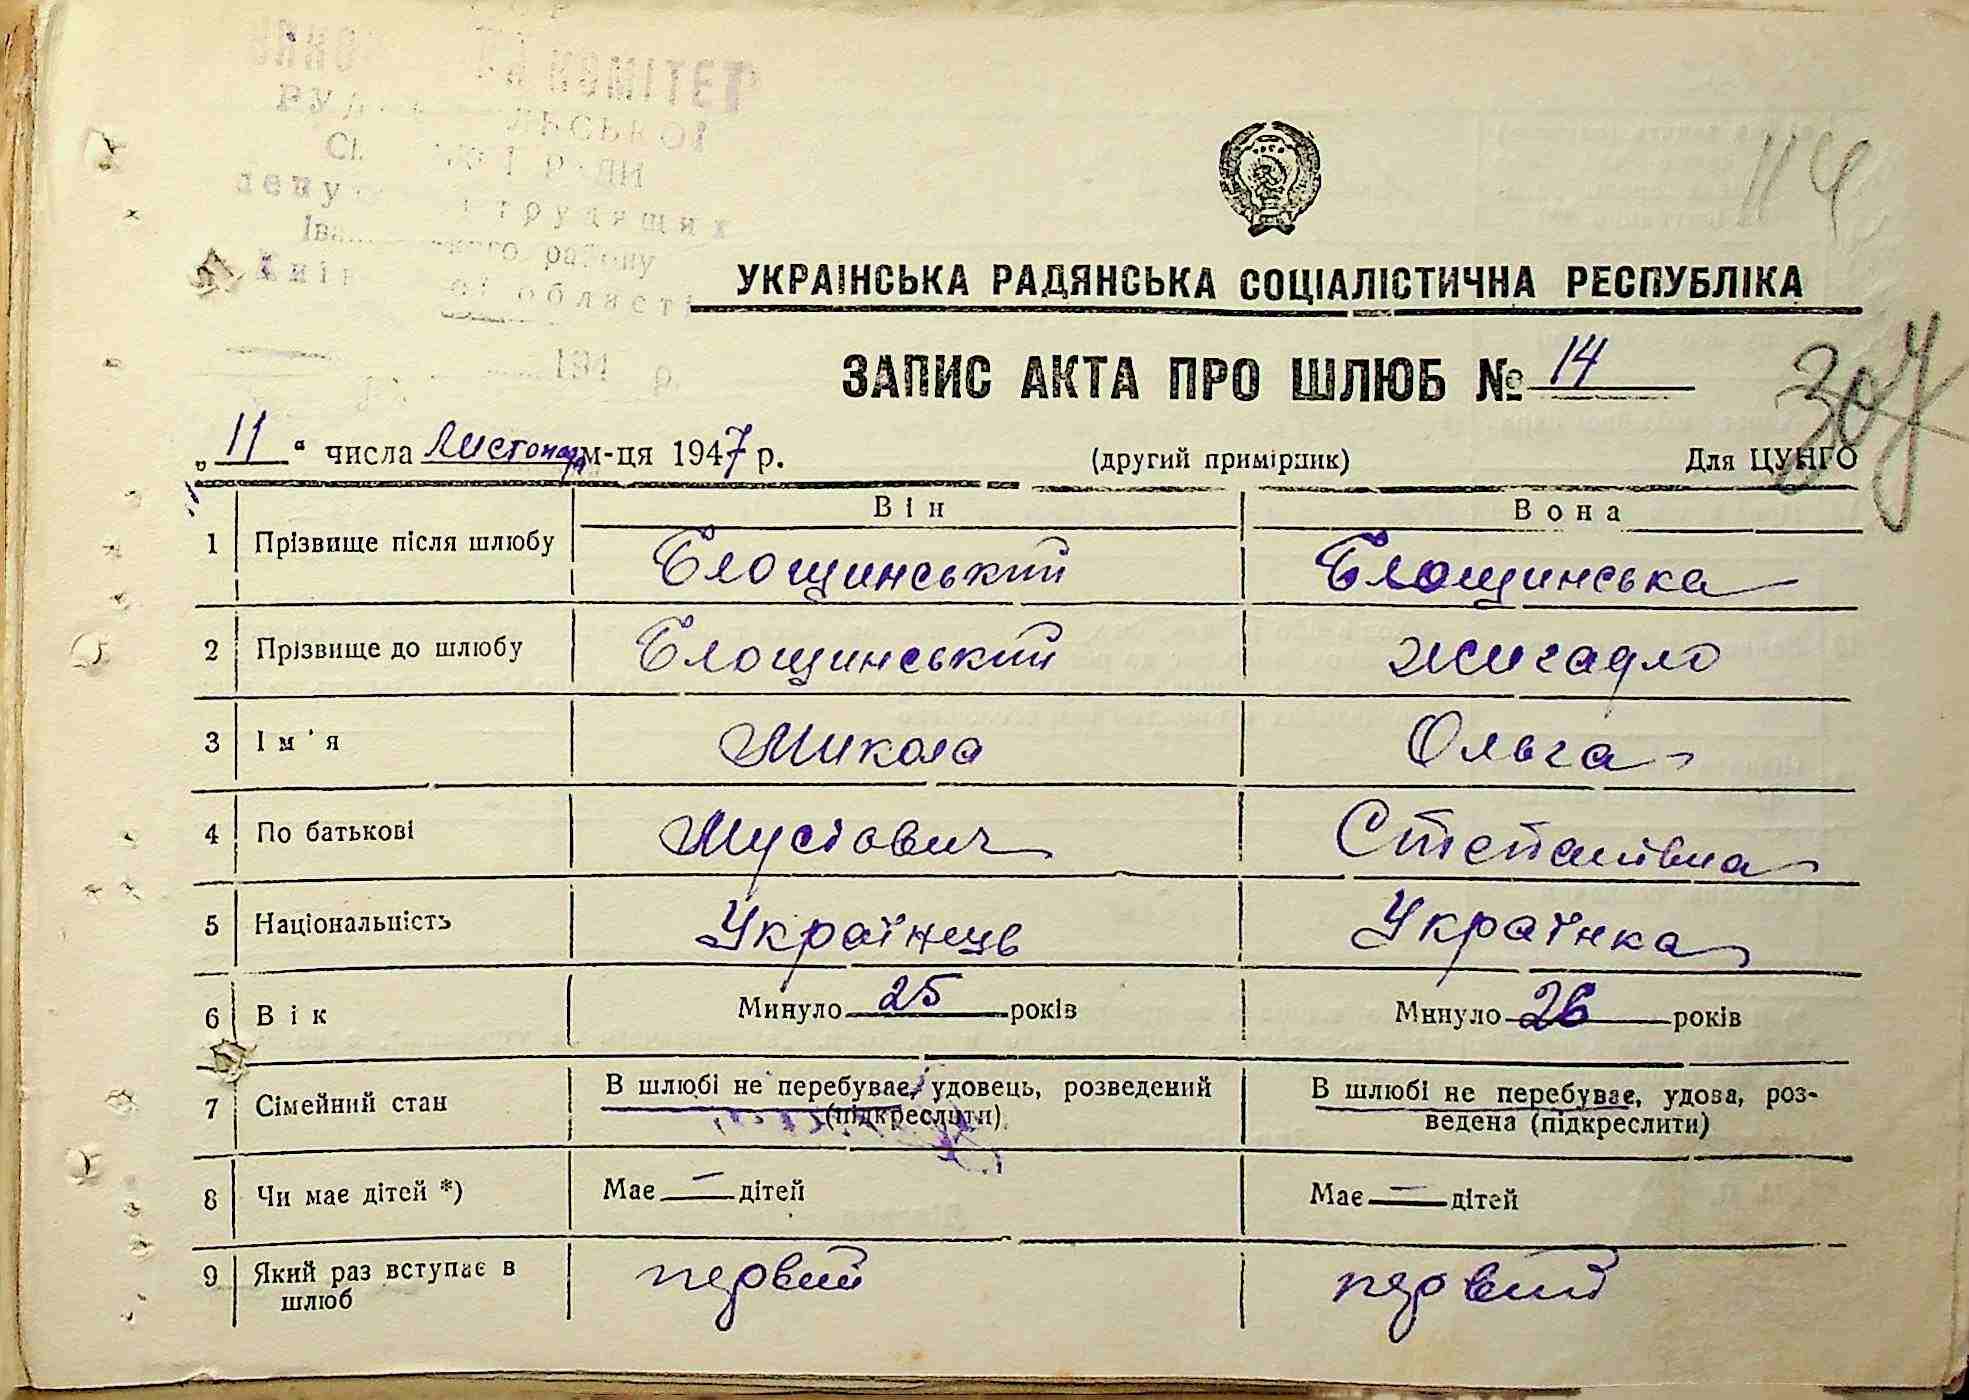 КОМІТЕТ
ЛЬСЬКОЇ
РАДИ
трудящих
району
області
194 р.
114
УКРАЇНСЬКА РАДЯНСЬКА СОЦІАЛІСТИЧНА РЕСПУБЛІКА
ЗАПИС АКТА ПРО ШЛЮБ № 14
307
„11“ числа Листопада м-ця 1947 р. (другий примірник) Для ЦУНГО
Він Вона
1 Прізвище після шлюбу Блощинський Блощинська
2 Прізвище до шлюбу Блощинський Жигадло
3 Ім'я Микола Ольга
4 По батькові Мусіович Степанівна
5 Національність Українець Українка
6 Вік Минуло 25 років Минуло 26 років
7 Сімейний стан В шлюбі не перебуває, удовець, розведений (підкреслити) В шлюбі не перебуває, удова, роз-
ведена (підкреслити)
8 Чи має дітей *) Має — дітей Має — дітей
9 Який раз вступає в шлюб первий первий